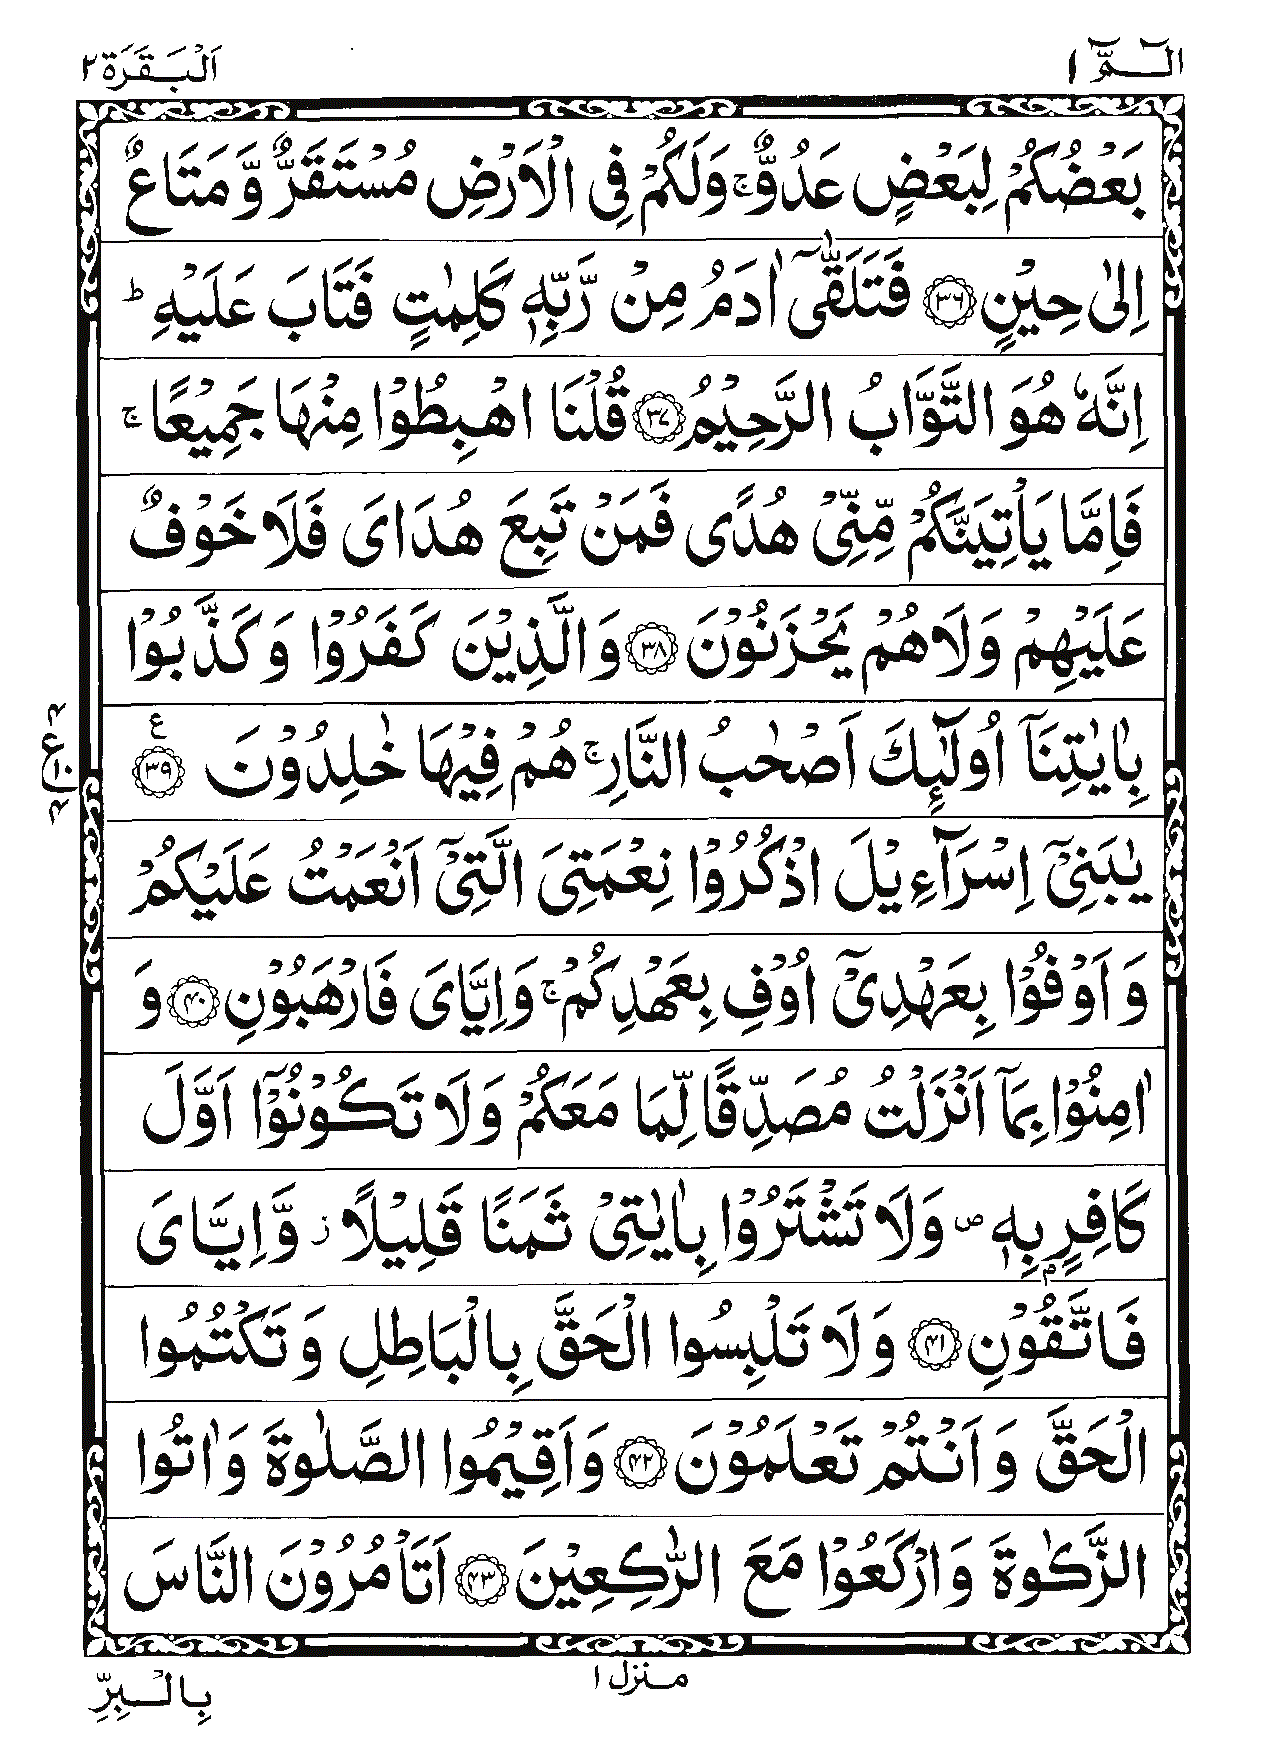 الٓـمّٓ ١ اَلْبَقَرَة ٢
بَعْضُكُمْ لِبَعْضٍ عَدُوٌّ ۚ وَلَكُمْ فِى الْاَرْضِ مُسْتَقَرٌّ وَّ مَتَاعٌ
اِلٰى حِيْنٍ ۝۳۶ فَتَلَقّٰٓى اٰدَمُ مِنْ رَّبِّهٖ كَلِمٰتٍ فَتَابَ عَلَيْهِ ؕ
اِنَّهٗ هُوَ التَّوَّابُ الرَّحِيْمُ ۝۳۷ قُلْنَا اهْبِطُوْا مِنْهَا جَمِيْعًا ۚ
فَاِمَّا يَاْتِيَنَّكُمْ مِّنِّىْ هُدًى فَمَنْ تَبِعَ هُدَاىَ فَلَا خَوْفٌ
عَلَيْهِمْ وَلَا هُمْ يَحْزَنُوْنَ ۝۳۸ وَ الَّذِيْنَ كَفَرُوْا وَ كَذَّبُوْا
بِاٰيٰتِنَآ اُولٰٓئِكَ اَصْحٰبُ النَّارِ ۚ هُمْ فِيْهَا خٰلِدُوْنَ ۝۳۹ ع
۴ ع ۱۰ ۴
يٰبَنِىْٓ اِسْرَآءِيْلَ اذْكُرُوْا نِعْمَتِىَ الَّتِىْٓ اَنْعَمْتُ عَلَيْكُمْ
وَ اَوْفُوْا بِعَهْدِىْٓ اُوْفِ بِعَهْدِكُمْ ۚ وَاِيَّاىَ فَارْهَبُوْنِ ۝۴۰ وَ
اٰمِنُوْا بِمَآ اَنْزَلْتُ مُصَدِّقًا لِّمَا مَعَكُمْ وَلَا تَكُوْنُوْٓا اَوَّلَ
كَافِرٍۭ بِهٖ ۪ وَلَا تَشْتَرُوْا بِاٰيٰتِىْ ثَمَنًا قَلِيْلًا ز وَّاِيَّاىَ
فَاتَّقُوْنِ ۝۴۱ وَ لَا تَلْبِسُوا الْحَقَّ بِالْبَاطِلِ وَ تَكْتُمُوا
الْحَقَّ وَ اَنْتُمْ تَعْلَمُوْنَ ۝۴۲ وَاَقِيْمُوا الصَّلٰوةَ وَاٰتُوا
الزَّكٰوةَ وَارْكَعُوْا مَعَ الرّٰكِعِيْنَ ۝۴۳ اَتَاْمُرُوْنَ النَّاسَ
منزل ١
بِالْبِرِّ